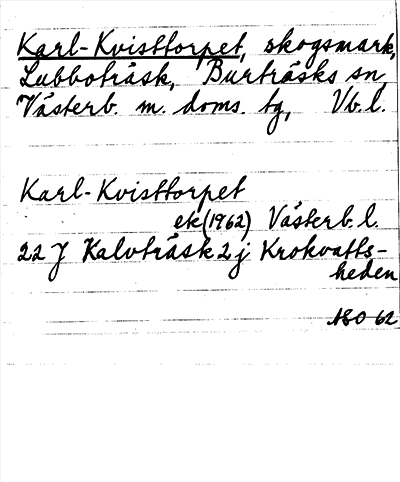 Karl-Kvisttorpet, skogsmark,
Lubboträsk, Burträsks sn
Västerb. m. doms. tg, Vb. l.
Karl-Kvisttorpet
ek (1962) Västerb. l.
22 J Kalvträsk 2 j Krokvatts-
heden
ASO 62